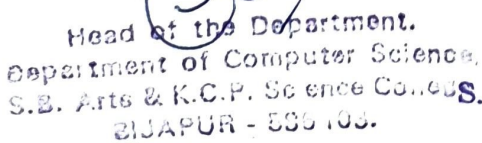 Head of the Department.
Department of Computer Science,
S.B. Arts & K.C.P. Science College.
BIJAPUR - 586 103.